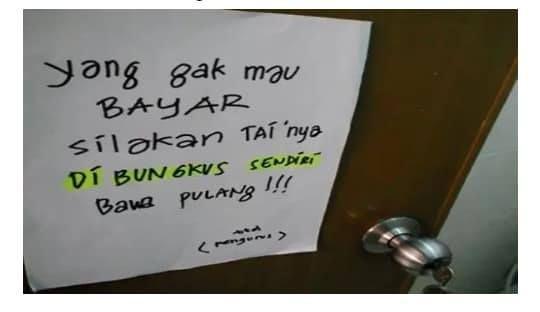 yang gak mau
BAYAR
silakan TAI'nya
DI BUNGKUS SENDIRI
Bawa PULANG !!!
( pengurus )